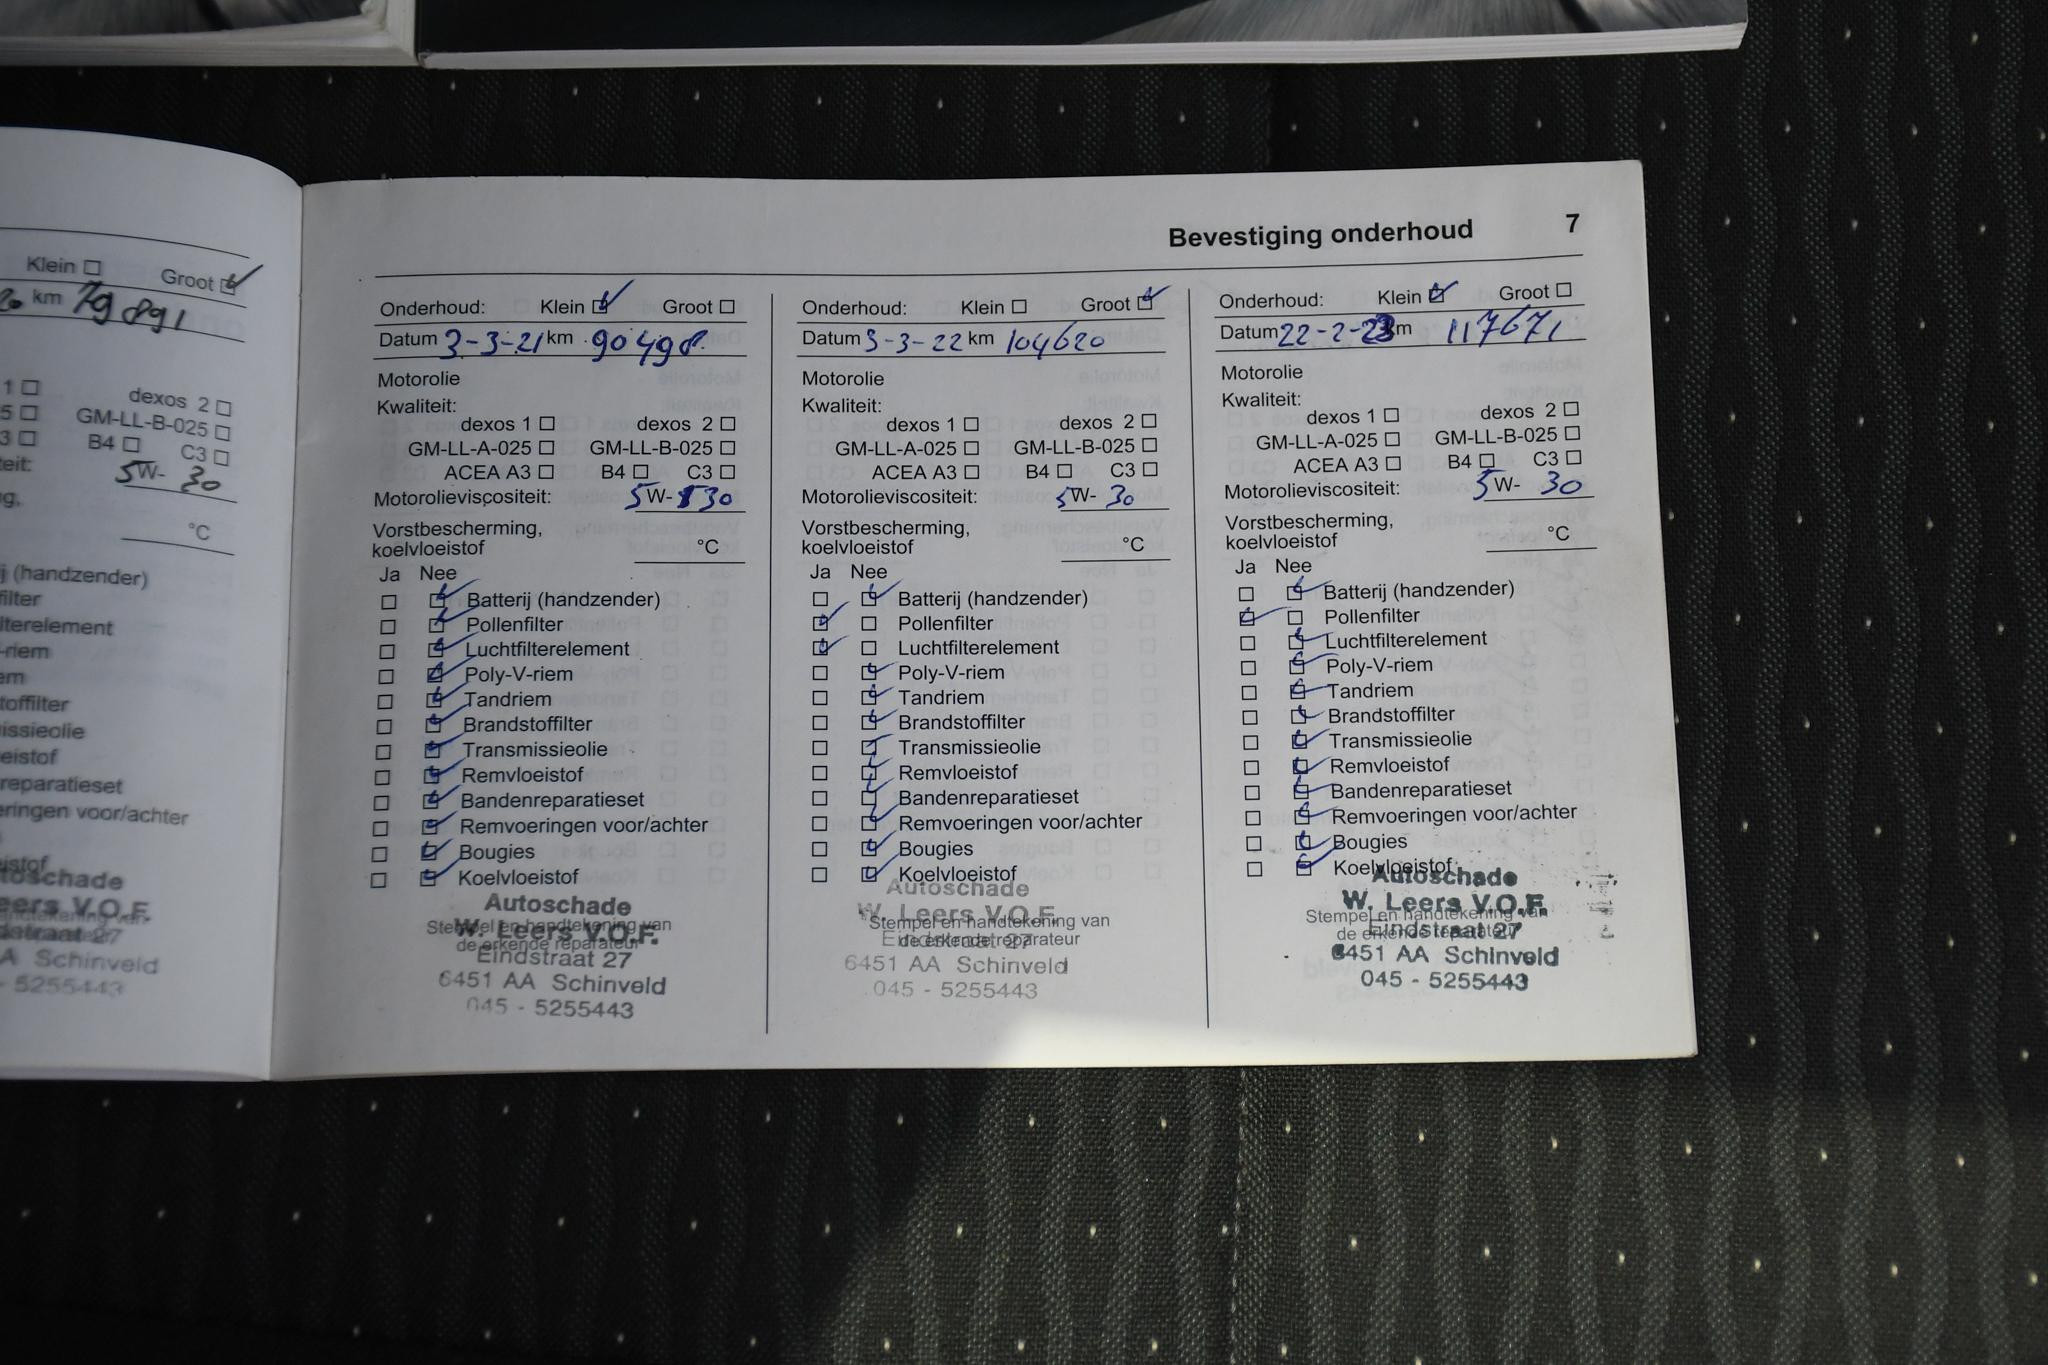 Klein ☐ Groot ☑
km 79891
1 ☐ dexos 2 ☐
5 ☐ GM-LL-B-025 ☐
3 ☐ B4 ☐ C3 ☐
teit: 5W-30
g,
°C
j (handzender)
filter
lterelement
-riem
em
toffilter
issieolie
eistof
reparatieset
eringen voor/achter
eistof
toschade
Leers V.O.F.
dstraat 27
A Schinveld
- 5255443
Bevestiging onderhoud 7
Onderhoud: Klein ☑ Groot ☐
Datum 3-3-21 km 90498
Motorolie
Kwaliteit:
dexos 1 ☐ dexos 2 ☐
GM-LL-A-025 ☐ GM-LL-B-025 ☐
ACEA A3 ☐ B4 ☐ C3 ☐
Motorolieviscositeit: 5W-30
Vorstbescherming,
koelvloeistof °C
Ja Nee
☐ ☑ Batterij (handzender)
☐ ☑ Pollenfilter
☐ ☑ Luchtfilterelement
☐ ☑ Poly-V-riem
☐ ☑ Tandriem
☐ ☑ Brandstoffilter
☐ ☑ Transmissieolie
☐ ☑ Remvloeistof
☐ ☑ Bandenreparatieset
☐ ☑ Remvoeringen voor/achter
☐ ☑ Bougies
☐ ☑ Koelvloeistof
Autoschade
Stempel en handtekening van
W. Leers V.O.F.
de erkende reparateur
Eindstraat 27
6451 AA Schinveld
045 - 5255443
Onderhoud: Klein ☐ Groot ☑
Datum 3-3-22 km 104620
Motorolie
Kwaliteit:
dexos 1 ☐ dexos 2 ☐
GM-LL-A-025 ☐ GM-LL-B-025 ☐
ACEA A3 ☐ B4 ☐ C3 ☐
Motorolieviscositeit: 5W-30
Vorstbescherming,
koelvloeistof °C
Ja Nee
☐ ☑ Batterij (handzender)
☑ ☐ Pollenfilter
☑ ☐ Luchtfilterelement
☐ ☑ Poly-V-riem
☐ ☑ Tandriem
☐ ☑ Brandstoffilter
☐ ☑ Transmissieolie
☐ ☑ Remvloeistof
☐ ☑ Bandenreparatieset
☐ ☑ Remvoeringen voor/achter
☐ ☑ Bougies
☐ ☑ Koelvloeistof
Autoschade
W. Leers V.O.F.
Stempel en handtekening van
Eindstraat 27
de erkende reparateur
6451 AA Schinveld
045 - 5255443
Onderhoud: Klein ☑ Groot ☐
Datum 22-2-23 km 117671
Motorolie
Kwaliteit:
dexos 1 ☐ dexos 2 ☐
GM-LL-A-025 ☐ GM-LL-B-025 ☐
ACEA A3 ☐ B4 ☐ C3 ☐
Motorolieviscositeit: 5W-30
Vorstbescherming,
koelvloeistof °C
Ja Nee
☐ ☑ Batterij (handzender)
☑ ☐ Pollenfilter
☐ ☑ Luchtfilterelement
☐ ☑ Poly-V-riem
☐ ☑ Tandriem
☐ ☑ Brandstoffilter
☐ ☑ Transmissieolie
☐ ☑ Remvloeistof
☐ ☑ Bandenreparatieset
☐ ☑ Remvoeringen voor/achter
☐ ☑ Bougies
☐ ☑ Koelvloeistof
Autoschade
W. Leers V.O.F.
Stempel en handtekening van
Eindstraat 27
de erkende reparateur
6451 AA Schinveld
045 - 5255443